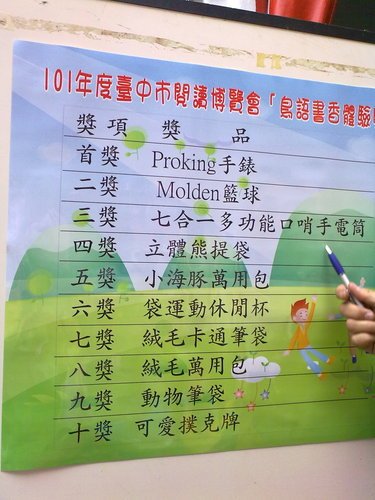 101年度臺中市閱讀博覽會「鳥語書香體驗
獎項 獎品
首獎 Proking手錶
二獎 Molden籃球
三獎 七合一多功能口哨手電筒
四獎 立體熊提袋
五獎 小海豚萬用包
六獎 袋運動休閒杯
七獎 絨毛卡通筆袋
八獎 絨毛萬用包
九獎 動物筆袋
十獎 可愛撲克牌